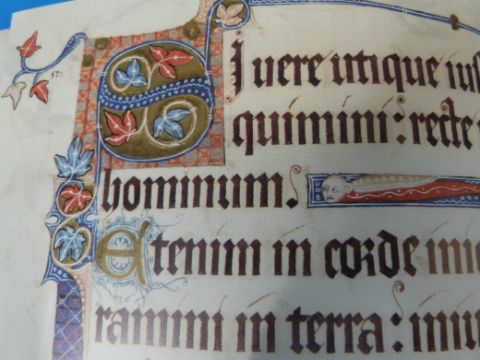 57:
SI uere utique ius
quimini: recte
hominum.
Etenim in corde ini
ramini in terra: iniu